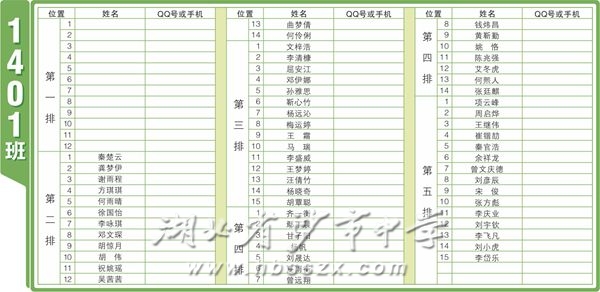 1401班
位置 姓名 QQ号或手机
第一排
1
2
3
4
5
6
7
8
9
10
11
12
第二排
1 秦楚云
2 龚梦伊
3 谢雨程
4 方琪琪
5 何雨晴
6 徐国怡
7 李咏琪
8 邓文琛
9 胡惊月
10 胡 伟
11 祝姚瑶
12 吴茜茜
位置 姓名 QQ号或手机
13 曲梦倩
14 何伶俐
第三排
1 文梓浩
2 李清榛
3 屈安江
4 邓伊娜
5 孙雅思
6 靳心竹
7 杨远沁
8 梅运婷
9 王 霜
10 马 瑞
11 李盛威
12 王梦婷
13 汪倩竹
14 杨晓奇
15 胡覃聪
第四排
1
2
3
4
5 刘晟达
6
7 曾远翔
位置 姓名 QQ号或手机
8 钱炜昌
9 黄靳勤
10 姚 恪
11 陈兆强
12 艾冬虎
13 何熙人
14 张廷麒
第五排
1 项云峰
2 周启烨
3 王继伟
4 崔锢劼
5 秦官浩
6 余祥龙
7 曾文庆德
8 刘彦辰
9 宋 俊
10 张方彪
11 李庆业
12 刘宇钦
13 李飞凡
14 刘小虎
15 李岱乐
www.hbsszx.com